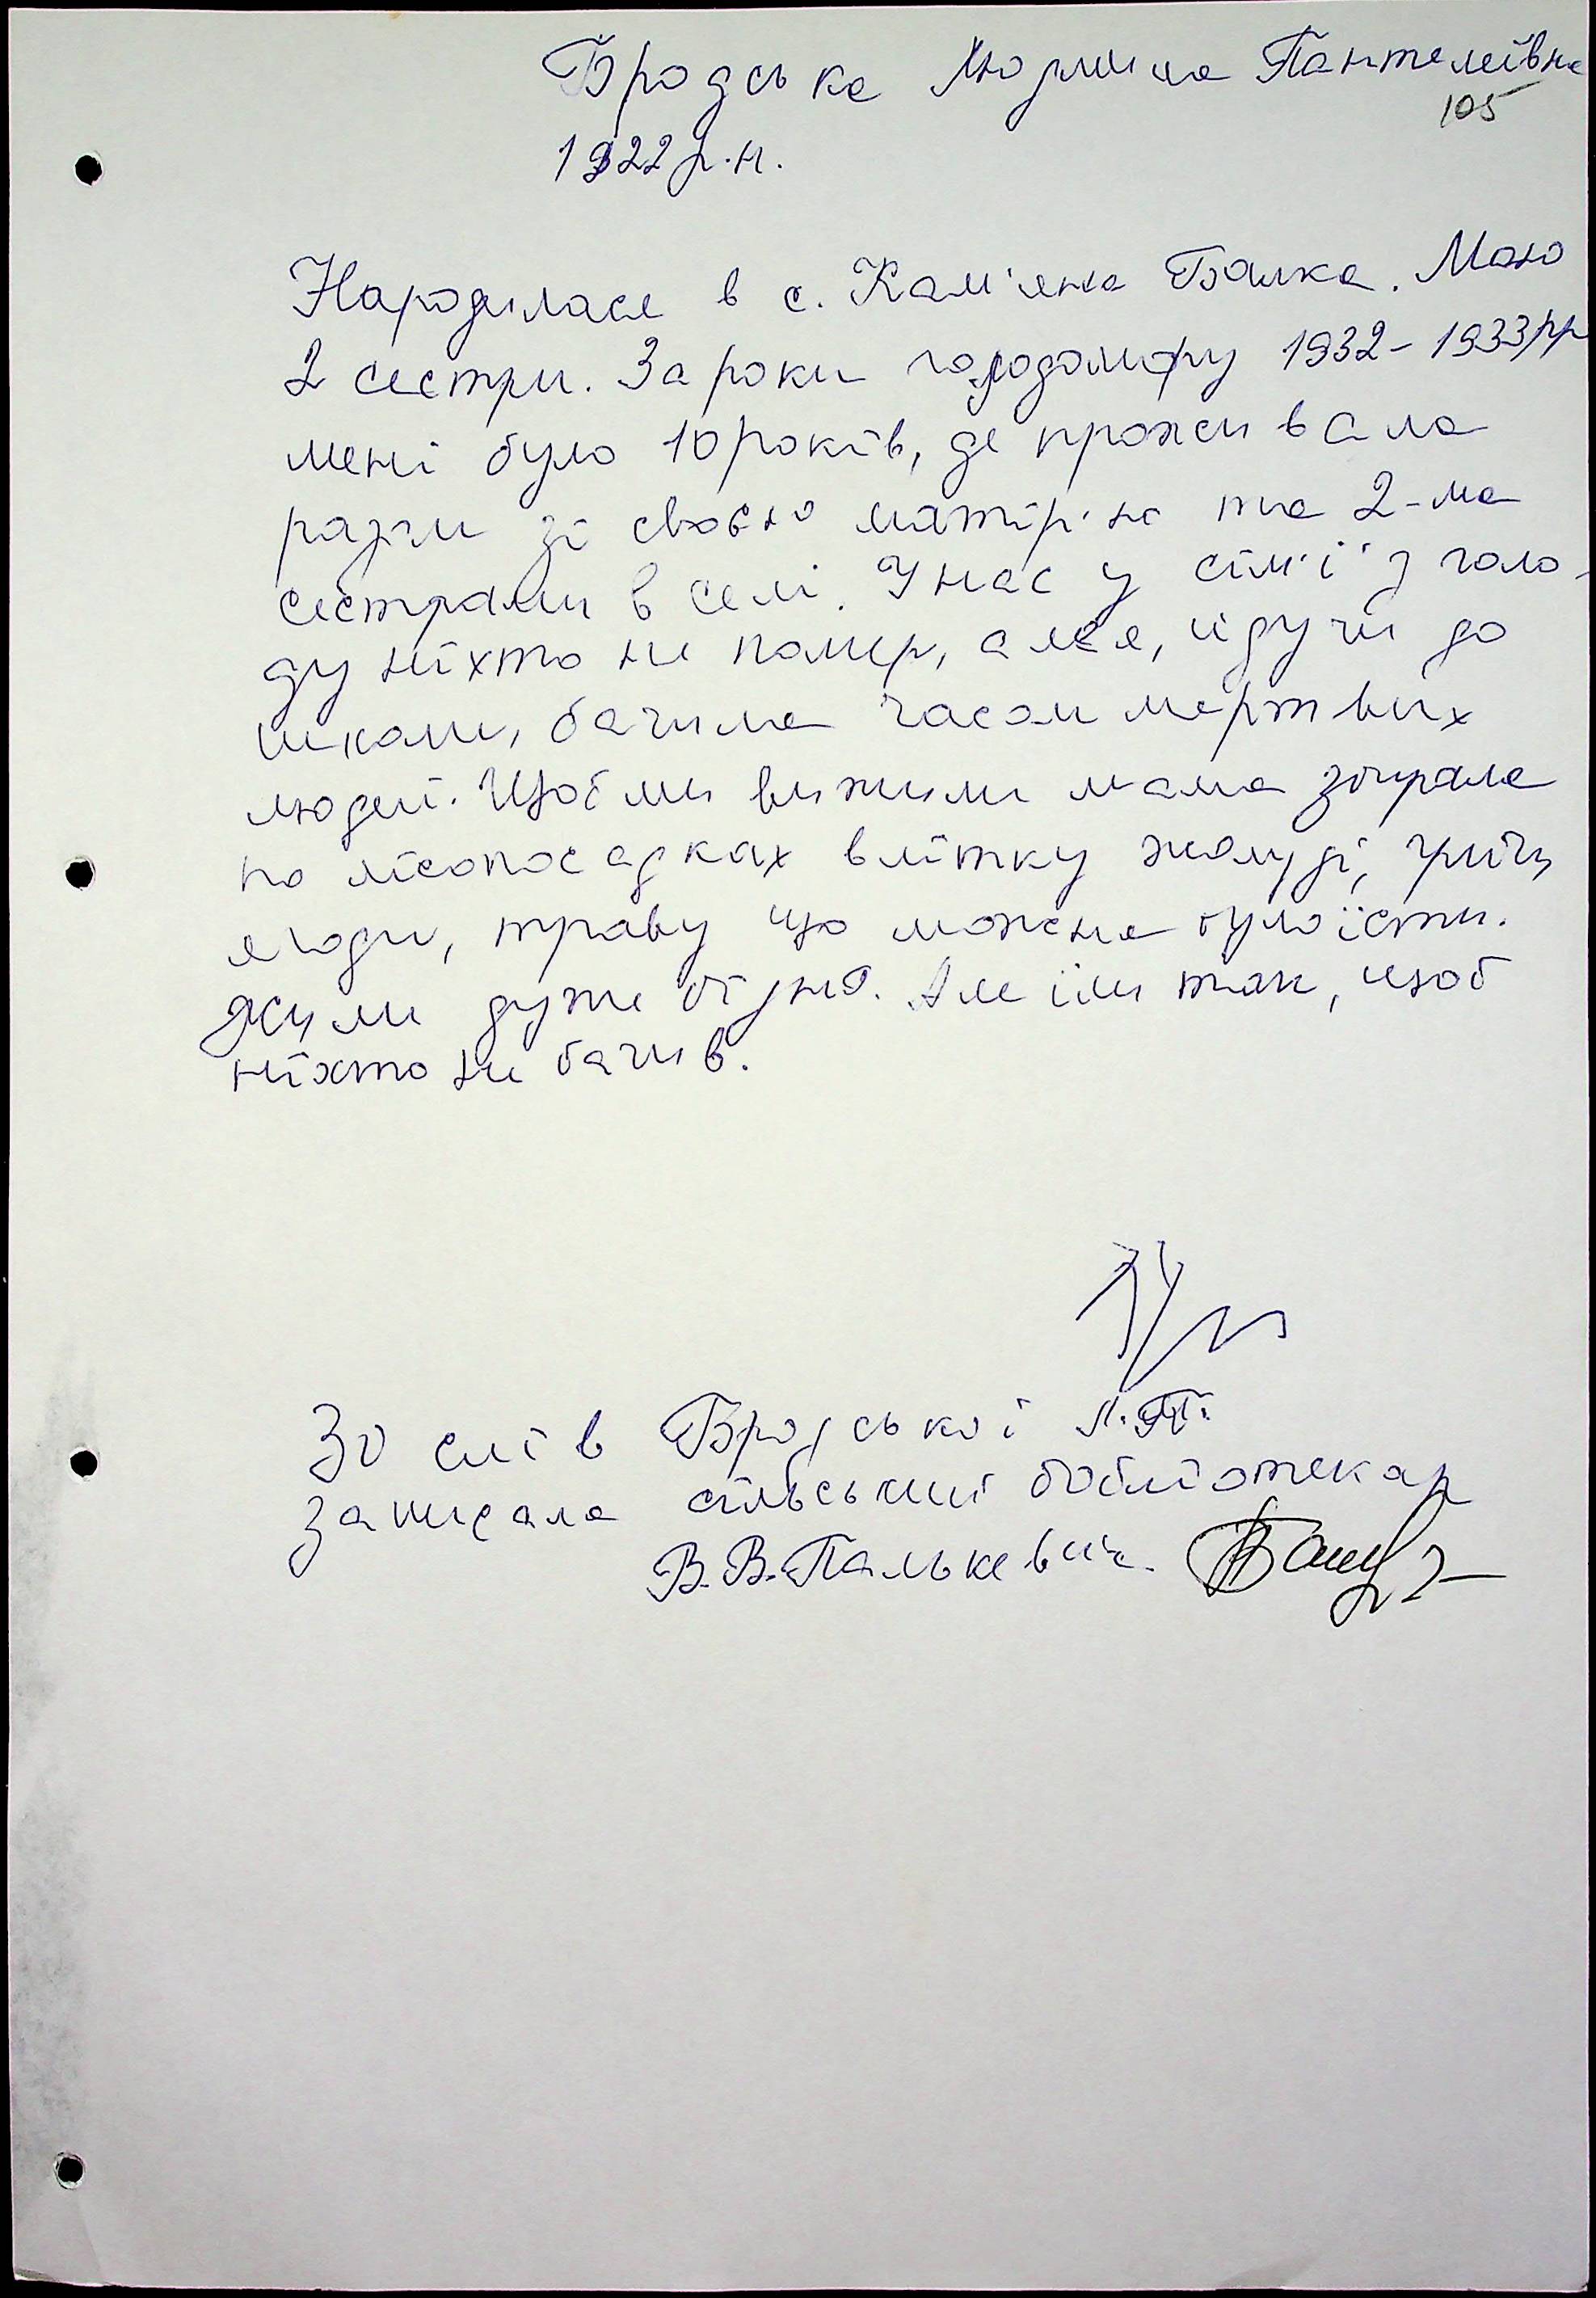 Бродська Людмила Пантеліївна
105
1922 р.н.
Народилася в с. Кам'яна Балка. Маю
2 сестри. За роки голодомору 1932-1933рр
мені було 10 років, де проживала
разом зі своєю матір'ю та 2-ма
сестрами в селі. У нас у сім'ї з голо-
ду ніхто не помер, але я, йдучи до
школи, бачила часом мертвих
людей. Щоб ми вижили мама збирала
по лісопосадках влітку жолуді,
ягоди, траву що можна було їсти.
Жили дуже бідно. Але їли так, щоб
ніхто не бачив.
Зо слів Бродської Л.П.
записала сільський бібліотекар
В.В.Палькевич.